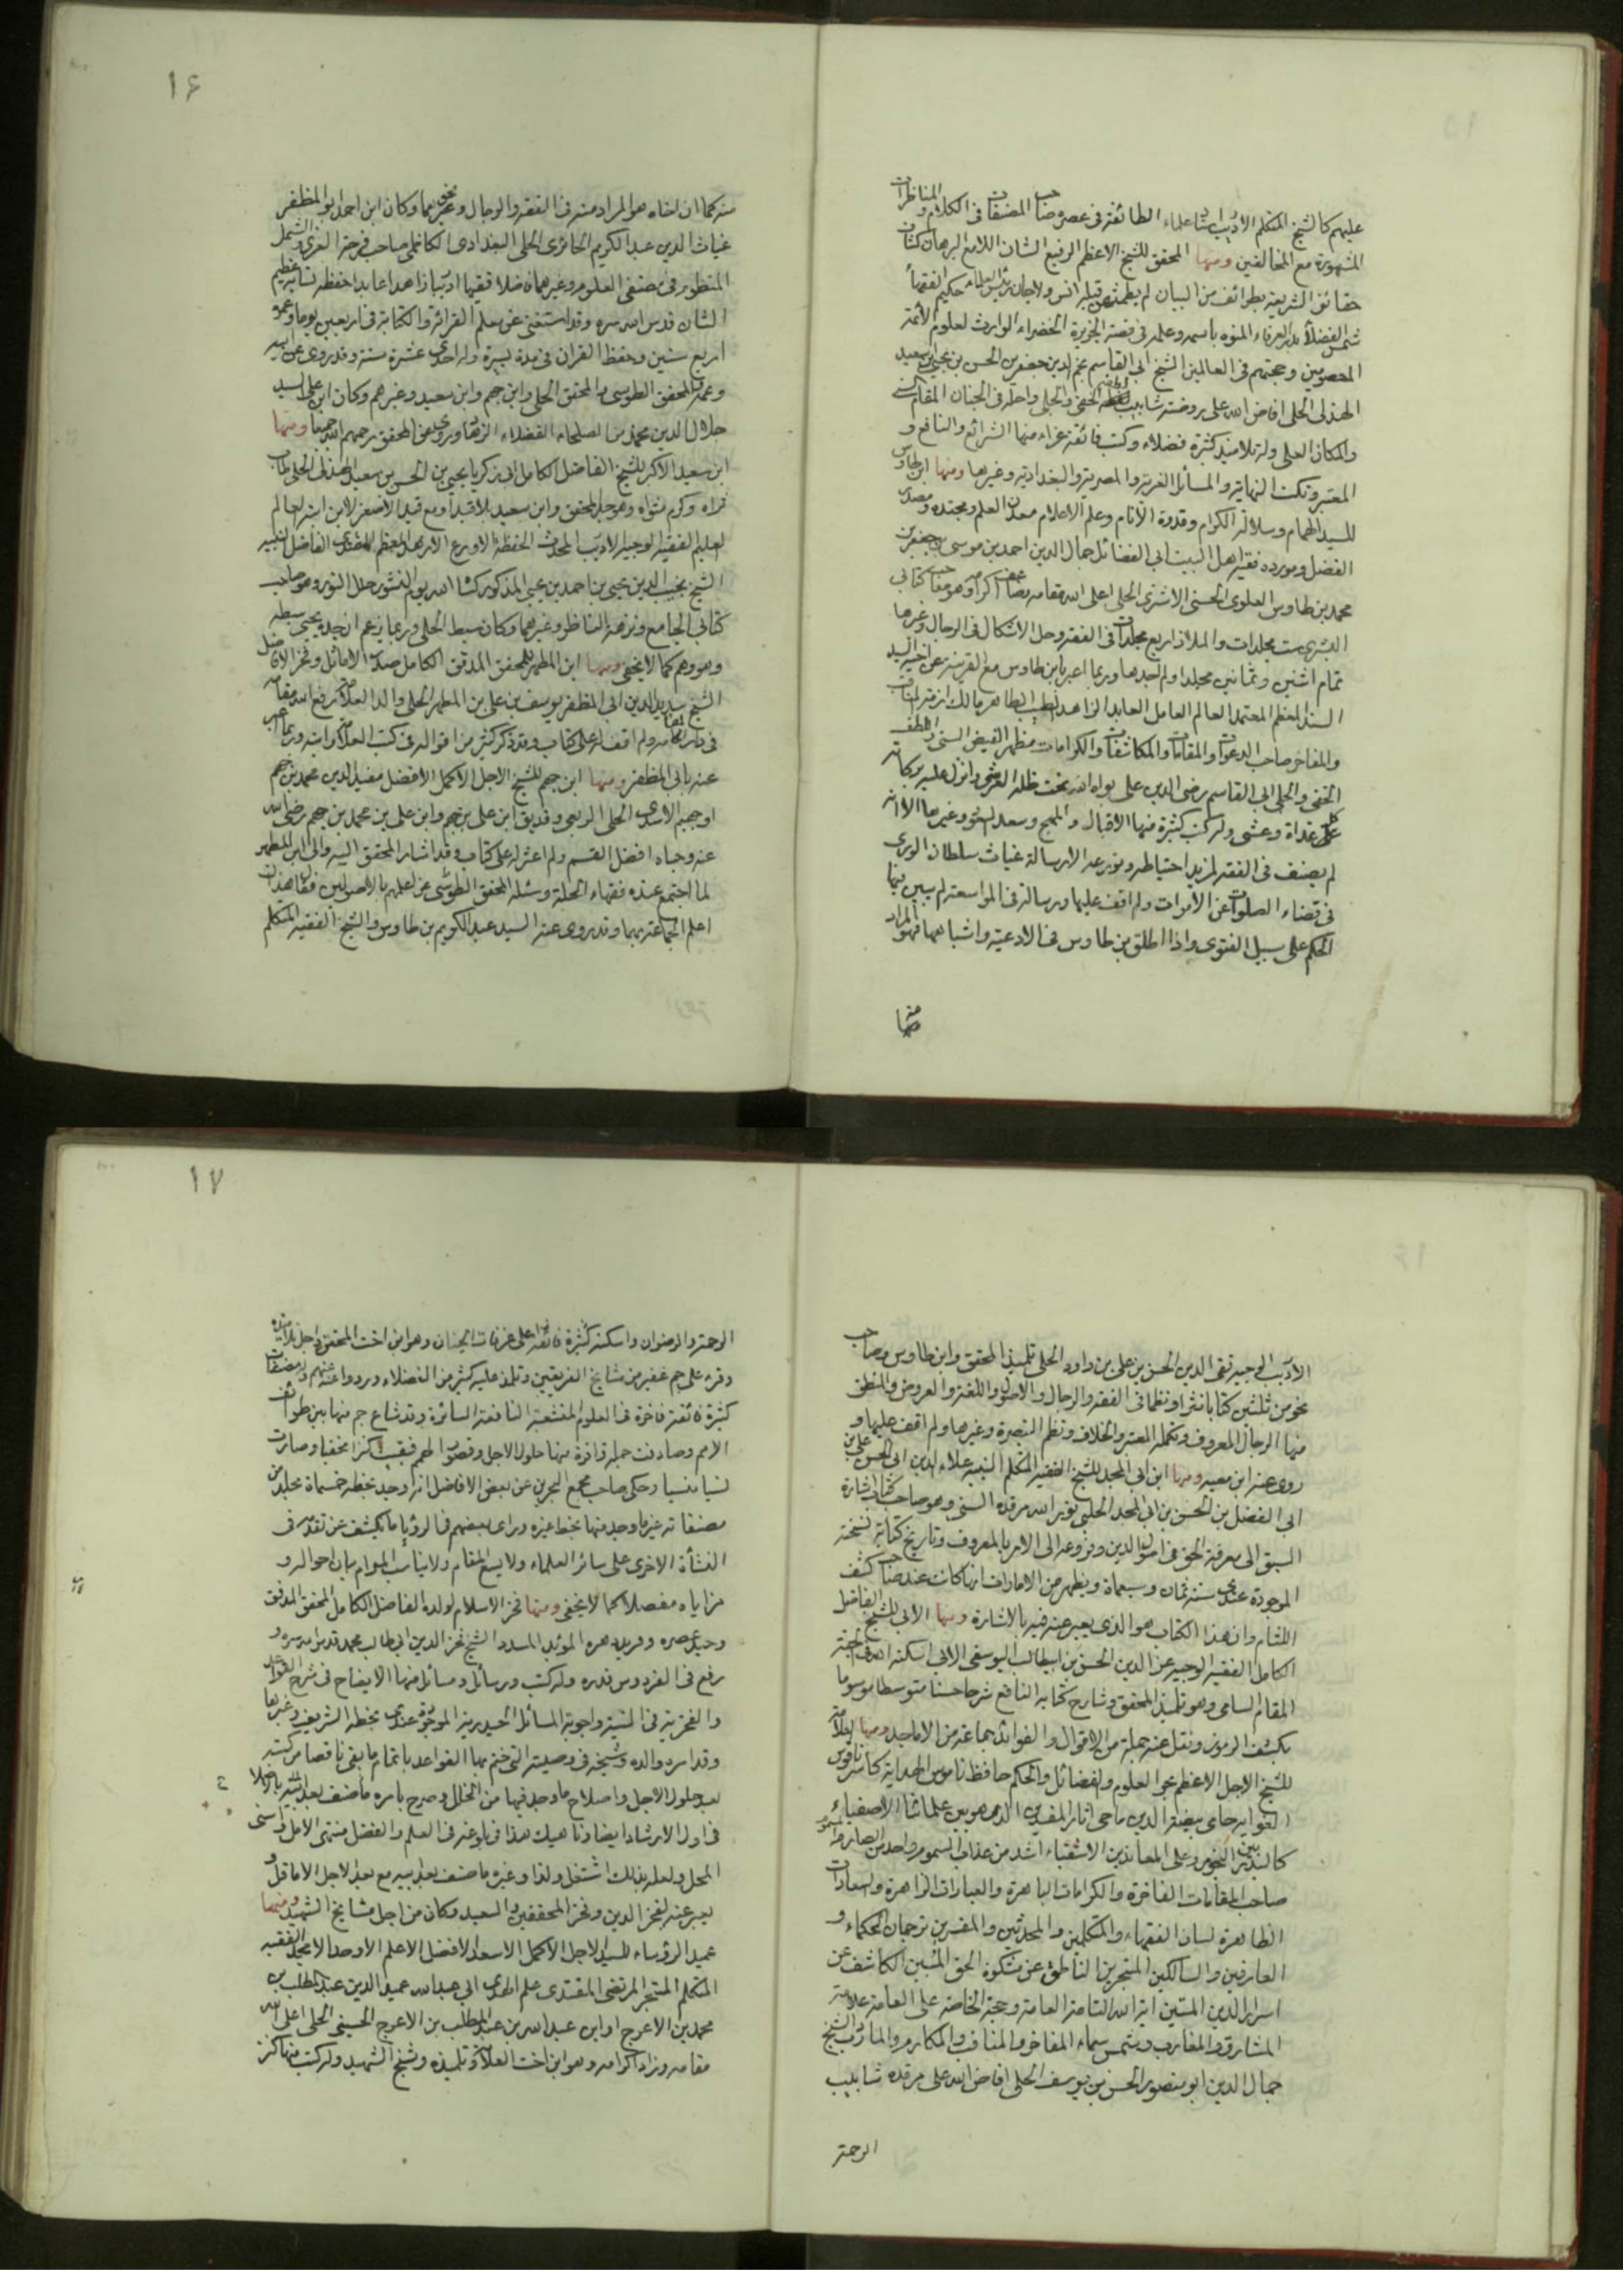 عليهم كالشيخ المتكلم الاديب استاد علماء الطائفة في عصره صاحب المصنفات في الكلام والمناظرات
المشهورة مع المخالفين ومنها المحقق للشيخ الاعظم الرفيع الشان اللامع البرهان كشاف
حقائق الشريعة بطرائف من البيان لم يطمثهن قبله انس ولا جان رئيس العلماء حكيم الفقهاء
شمس الفضلاء بدر العرفاء المنوه باسمه وعلمه في قصة الجزيرة الخضراء الوارث لعلوم الائمة
المعصومين وحجتهم في العالمين الشيخ ابي القاسم نجم الدين جعفر بن الحسن بن يحيى بن سعيد
الهذلي الحلي افاض الله على روضته شابيب لطفه الخفي والجلي واحله في الجنان المقام السني
والمكان العلي وله تلاميذ كثيرة فضلاء وكتب فائقة غراء منها الشرائع والنافع و
المعتبر ونكت النهاية والمسائل الغرية والمصرية والبغدادية وغيرها ومنها ابن طاوس
للسيد الهمام وسلالة الكرام وقدوة الانام وعلم الاعلام معدن العلم ومحتده ومصدر
الفضل ومورده فقيه اهل البيت ابي الفضائل جمال الدين احمد بن موسى بن جعفر بن
محمد بن طاوس العلوي الحسني الحلي اعلى الله مقامه وهو صاحب كتابي
البشرى ست مجلدات والملاذ اربع مجلدات في الفقه وحل الاشكال في الرجال وغيرها
تمام اثنين وثمانين مجلدا ولم اجدها وربما اعبر بابن طاوس مع القرينة عن اخيه السيد
السند المعظم المعتمد العالم العامل العابد الزاهد الطيب الطاهر مالك ازمة المناقب
والمفاخر صاحب الدعوات والمقامات والمكاشفات والكرامات مظهر الفيض السني واللطف
الخفي والجلي ابي القاسم رضي الدين علي بواه الله تحت ظله العرشي وانزل عليه بركاته
كل غداة وعشي وله كتب كثيرة منها الاقبال والمهج وسعد السعود وغيرها الا انه
لم يصنف في الفقه لمزيد احتياطه وتورعه الا رسالة غياث سلطان الورى
في قضاء الصلوات عن الاموات ولم اقف عليها ورسالة في المواسعة لم يبين فيها
الحكم على سبيل الفتوى واذا اطلق بن طاوس في الادعية واشباهها فهو المراد
منه كما ان اخاه هو المراد منه في الفقه والرجال ونحوهما وكان ابن احمد ابو المظفر
غياث الدين عبد الكريم الحائري الحلي البغدادي الكاظمي صاحب فرحة الغري والشمل
المنظوم في مصنفي العلوم وغيرهما فاضلا فقيها اديبا زاهدا عابدا حفظة نسابة عظيم
الشان قدس الله سره وقد استغنى عن معلم القرائة والكتابة في اربعين يوما وعمره
اربع سنين وحفظ القران في مدة يسيرة وله احدى عشرة سنة وقد روى عن ابيه
وعمه والمحقق الطوسي والمحقق الحلي وابن جهم وابن سعيد وغيرهم وكان ابن علي السيد
جلال الدين محمد من الصلحاء الفضلاء الزهاد ويروي عن المحقق رحمهم الله جميعا ومنها
ابن سعيد الاكبر للشيخ الفاضل الكامل ابي زكريا يحيى بن الحسن بن سعيد الهذلي الحلي طاب
ثراه وكرم مثواه وهو جد المحقق وابن سعيد بلا قيد او مع قيد الاصغر لابن ابنه العالم
العليم الفقيه الوجيه الاديب المحدث الحفظة الاورع الازهد المعظم المقتدى الفاضل النبيه
الشيخ نجيب الدين يحيى بن احمد بن يحيى المذكور كساه الله يوم النشور حلل النور وهو صاحب
كتابي الجامع ونزهة الناظر وغيرهما وكان سبط الحلي وربما يزعم ان جده يحيى سبطه
وهو وهم كما لا يخفى ومنها ابن المطهر للمحقق المدقق الكامل صدر الاماثل وفخر الافاضل
الشيخ سديد الدين ابي المظفر يوسف بن علي بن المطهر الحلي والد العلامة رفع الله مقامه
في دار المقامة ولم اقف له على كتاب وقد ذكر كثير من اقواله في كتب العلامة وابنه وربما اعبر
عنه بابي المظفر ومنها ابن جهم للشيخ الاجل الاكمل الافضل مفيد الدين محمد بن جهم
او جهيم الاسدي الحلي الربعي وقد يق ابن علي بن جهم وابن علي بن محمد بن جهم رضي الله
عنه وحباه افضل القسم ولم اعثر له على كتاب وقد اشار المحقق اليه والى ابن المطهر
لما اجتمع عنده فقهاء الحلة وسئله المحقق الطوسي عن اعلمهم بالاصولين فقال هذان
اعلم الجماعة بهما وقد روى عنه السيد عبد الكريم بن طاوس والشيخ الفقيه المتكلم
١۶
الاديب الوجيه تقي الدين الحسن بن علي بن داود الحلي تلميذ المحقق وابن طاوس وصاحب
نحو من ثلثين كتابا نثرا ونظما في الفقه والرجال والاصول واللغة والعروض والمنطق
منها الرجال المعروف وتكملة المعتبر والخلاف ونظم التبصرة وغيرها ولم اقف عليها و
روى عنه ابن معيه ومنها ابن ابي المجد للشيخ الفقيه المتكلم النبيه علاء الدين ابي الحسن علي بن
ابي الفضل بن الحسن بن ابي المجد الحلبي نور الله مرقده السني وهو صاحب كتاب اشارة
السبق الى معرفة الحق في اصول الدين وفروعه الى الامر بالمعروف وتاريخ كتابة نسخته
الموجودة عندي سنة ثمان وسبعمأة ويظهر من الامارات انها كانت عند صاحب كشف
اللثام وان هذا الكتاب هو الذي يعبر عنه فيه بالاشارة ومنها الابي للشيخ الفاضل
الكامل الفقيه الوجيه عز الدين الحسن بن ابيطالب اليوسفي الابي اسكنه الله في الجنة
المقام السامي وهو تلميذ المحقق وشارح كتابه النافع شرحا حسنا متوسطا موسوما
بكشف الرموز ونقل عنه جملة من الاقوال والفوائد جماعة من الاماجد ومنها العلامة
للشيخ الاجل الاعظم بحر العلوم والفضائل والحكم حافظ ناموس الهداية كاسر ناقوس
الغواية حامي بيضة الدين ماحي اثار المفسدين الذي هو بين علمائنا الاصفياء
كالبدر بين النجوم وعلى المعاندين الاشقياء اشد من عذاب السموم واحد من الصارم المسموم
صاحب المقامات الفاخرة والكرامات الباهرة والعبارات الزاهرة والسعادات
الظاهرة لسان الفقهاء والمتكلمين والمحدثين والمفسرين ترجمان الحكماء و
العارفين والسالكين المتبحرين الناطق عن مشكوة الحق المبين الكاشف عن
اسرار الدين المتين اية الله التامة العامة وحجة الخاصة على العامة علامة
المشارق والمغارب وشمس سماء المفاخر والمناقب والمكارم والمآرب الشيخ
جمال الدين ابو منصور الحسن بن يوسف الحلي افاض الله على مرقده شابيب
الرحمة
الرحمة والرضوان واسكنه اعلى غرفات الجنان وهو ابن اخت المحقق واجل تلامذته
وقرء على جم غفير من مشايخ الفريقين وتلمذ عليه كثير من الفضلاء ورووا عنه وله مصنفات
كثيرة فائقة فاخرة في العلوم المتشعبة النافعة السائرة وقد شاع جم منها بين طوائف
الامم وصادفت جملة وافرة منها حلول الاجل وقصور الهمم فبقيت كنزا مخفيا وصارت
نسيا منسيا وحكى صاحب مجمع البحرين عن بعض الافاضل انه وجد بخطه خمسمأة مجلد من
مصنفاته غير ما وجد منها بخط غيره وراى بعضهم في الرؤيا ما يكشف عن تقدمه في
النشأة الاخرى على سائر العلماء ولا يسع المقام ولا يناسب المرام بيان احواله و
مزاياه مفصلا كما لا يخفى ومنها فخر الاسلام لولده الفاضل الكامل المحقق المدقق
وحيد عصره وفريد دهره المؤيد المسدد الشيخ فخر الدين ابي طالب محمد قدس الله سره و
رفع في الفردوس قدره وله كتب ورسائل ومسائل منها الايضاح في شرح القواعد
والفخرية في النية واجوبة المسائل الحيدرية الموجودة عندي بخطه الشريف وغيرها
وقد امره والده وشيخه في وصيته التي ختم بها القواعد باتمام ما بقي ناقصا من كتبه
بعد حلول الاجل واصلاح ما وجد فيها من الخلل وصرح بامره ما صنف بعد
في اول الارشاد ايضا وناهيك هذا في بلوغه في العلم والفضل منتهى الامل واسنى
المحل ولعله بذلك اشتغل ولذا وغيره ما صنف بعد ابيه مع بعد الاجل الا ما قل و
يعبر عنه بفخر الدين وفخر المحققين والسعيد وكان من اجل مشايخ الشهيد ومنها
عميد الرؤساء للسيد الاجل الاكمل الاسعد الافضل الاعلم الاوحد الامجد الفقيه
المتكلم المتبحر المرتضى المقتدى علم الهدى ابي عبد الله عميد الدين عبد المطلب بن
محمد بن الاعرج او ابن عبد الله بن عبد المطلب بن الاعرج الحسيني الحلي اعلى الله
مقامه وزاد اكرامه وهو ابن اخت العلامة وتلميذه وشيخ الشهيد وله كتب منها كنز
١٧